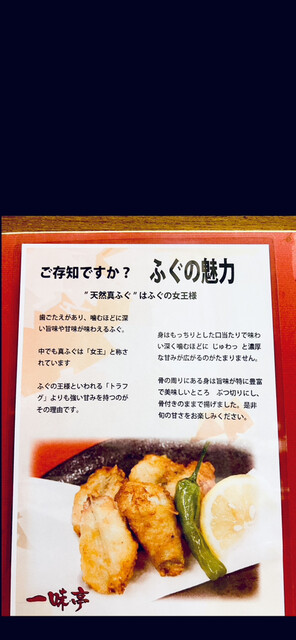 ご存知ですか？ ふぐの魅力
”天然真ふぐ“はふぐの女王様
歯ごたえがあり、噛むほどに深
い旨味や甘味が味わえるふぐ。
中でも真ふぐは「女王」と称さ
れています
ふぐの王様といわれる「トラフ
グ」よりも強い甘みを持つのが
その理由です。
身はもっちりとした口当たりで味わ
い深く噛むほどに じゅわっ と濃厚
な甘みが広がるのがたまりません。
骨の周りにある身は旨味が特に豊富
で美味しいところ ぶつ切りにし、
骨付きのままで揚げました。是非
旬の甘さをお楽しみください。
一味亭